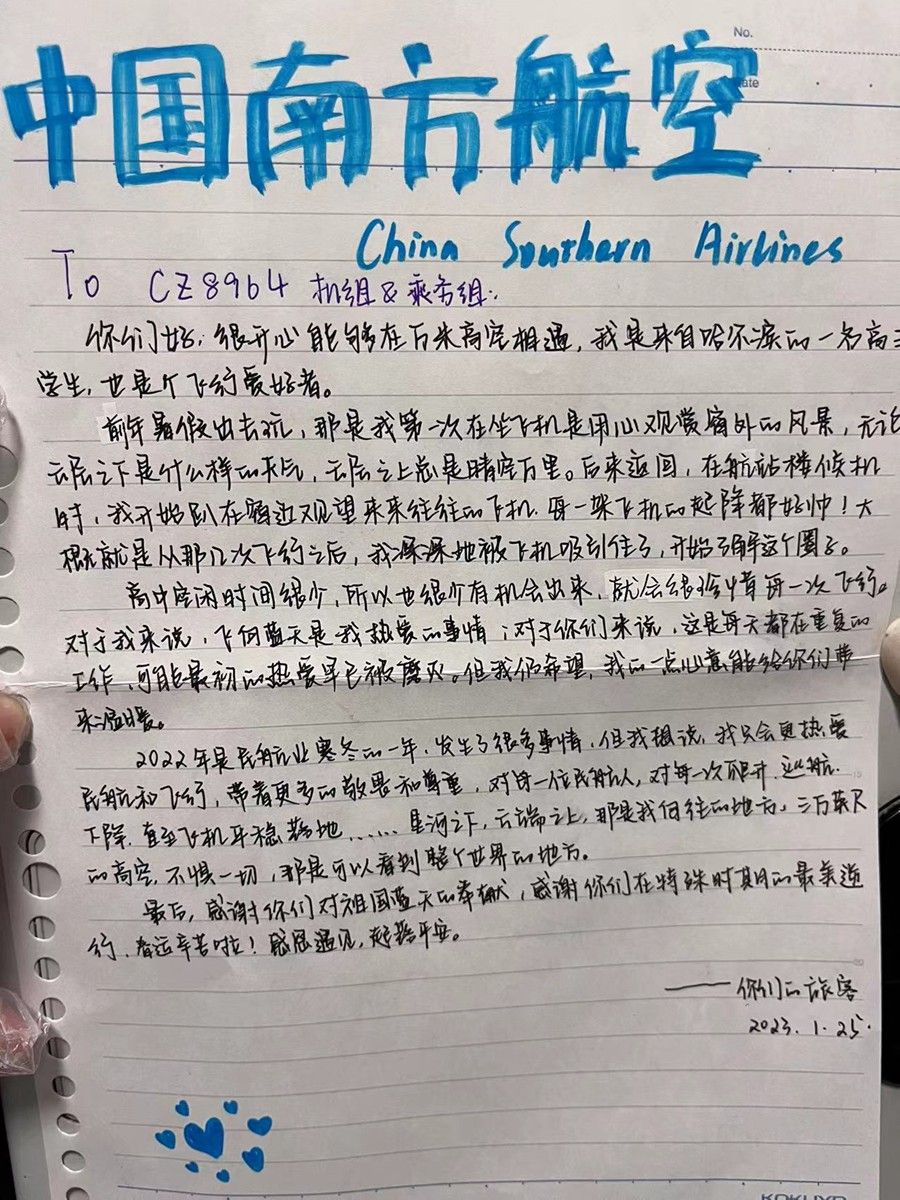 No.
中国南方航空
Date
China Southern Airlines
To CZ8964 机组&乘务组:
你们好,很开心能够在万米高空相遇,我是来自哈尔滨的一名高三
学生,也是个飞行爱好者。
前年暑假出去玩,那是我第一次在坐飞机是用心观赏窗外的风景,无论
云层之下是什么样的天气,云层之上总是晴空万里。后来返回,在航站楼候机
时,我开始趴在窗边观望来来往往的飞机,每一架飞机的起降都好帅!大
概就是从那几次飞行之后,我深深地被飞机吸引住了,开始了解这个圈子。
高中空闲时间很少,所以也很少有机会出来,就会很珍惜每一次飞行。
对于我来说,飞向蓝天是我热爱的事情;对于你们来说,这是每天都在重复的
工作,可能最初的热爱早已被磨灭。但我仍希望,我的一点心意能给你们带
来温暖。
2022年是民航业寒冬的一年,发生了很多事情,但我想说,我只会更热爱
民航和飞行,带着更多的敬畏和尊重,对每一位民航人,对每一次推开、巡航、
下降,直至飞机平稳落地……星河之下,云端之上,那是我向往的地方,三万英尺
的高空,不惧一切,那是可以看到整个世界的地方。
最后,感谢你们对祖国蓝天的奉献,感谢你们在特殊时期的最美逆
行,春运辛苦啦!感恩遇见,起落平安。
——你们的旅客
2023.1.25.
KOKUYO